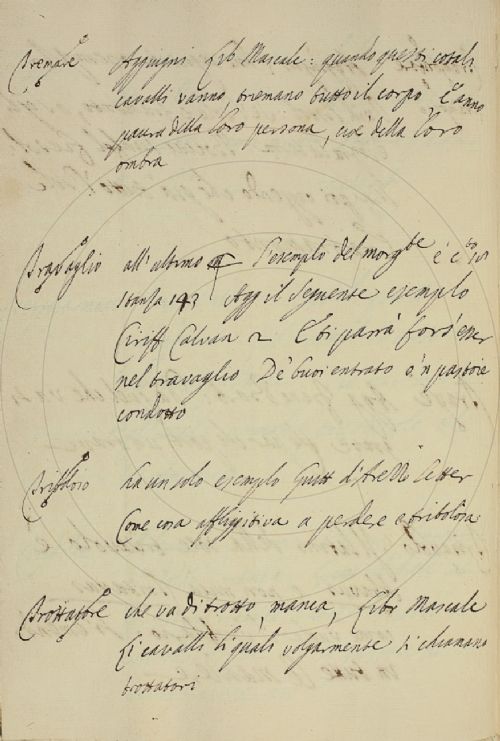 Tremare Aggiugni Lib Mascalc: quando questi cotali
cavalli vanno, triemano tutto il corpo, E anno
paura della loro persona, cioè della loro
ombra
Travaglio all'ultimo ¶ l'esempio del morg.te è c.to
stanza 143 Agg il seguente esempio
Ciriff Calvan 2 E ti parrà fors'esser
nel travaglio De' buoi entrato o 'n pastoie
condotto
Triboloso ha un solo esempio Guitt d'Arezzo Letter
Come cosa affliggitiva a perdere e tribolosa
Trottatore che va di trotto, manca, Libr Mascalc
Li cavalli li quali volgarmente si chiamano
trottatori